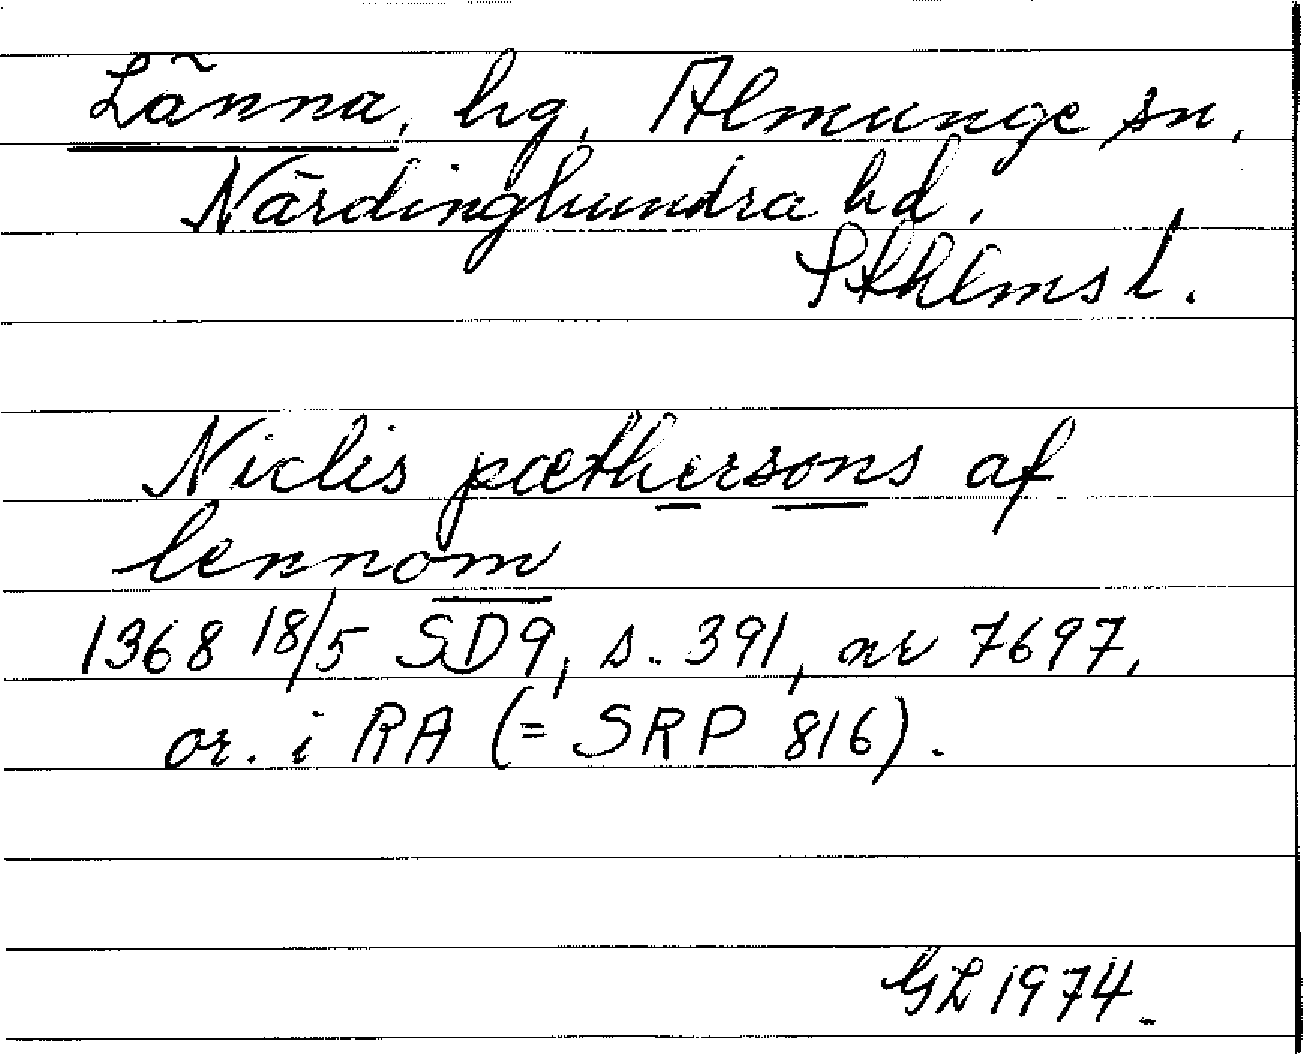 Länna, hg, Almunge sn,
Närdinghundra hd.
Sthlms l.
Niclis pæthersons af
lennom
1368 18/5 SD9, s. 391, nr 7697,
or. i RA (= SRP 816).
GL 1974.